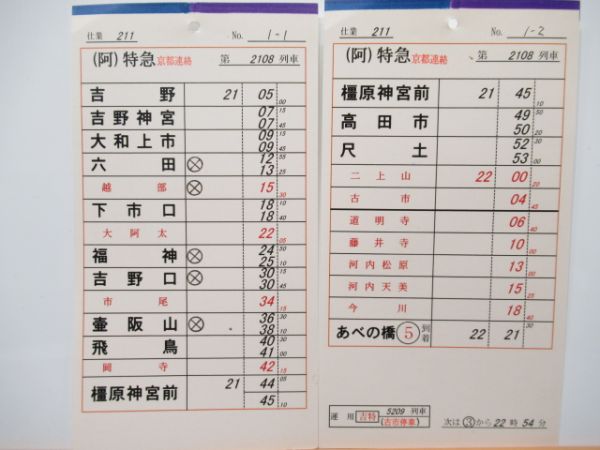 仕業 211 No. 1-1
(阿) 特急 京都連絡 第 2108 列車
吉野 21 05 00
吉野神宮 07 15
07 45
大和上市 09 15
09 45
六田 ⊗ 12 55
13 25
越部 ⊗ 15 30
下市口 18 10
18 40
大阿太 22 05
福神 ⊗ 24 50
25 10
吉野口 ⊗ 30 15
30 45
市尾 34 15
壷阪山 ⊗ 36 30
38 10
飛鳥 40 30
41 00
岡寺 42 15
橿原神宮前 21 44 05
45 10
仕業 211 No. 1-2
(阿) 特急 京都連絡 第 2108 列車
橿原神宮前 21 45 10
高田市 49 50
50 20
尺土 52 30
53 00
二上山 22 00 20
古市 04 45
道明寺 06 40
藤井寺 10 00
河内松原 13 00
河内天美 15 25
今川 18 40
あべの橋 ⑤ 到着 22 21 30
運用 吉特 5209 列車
(古市停車)
次は③から22時54分